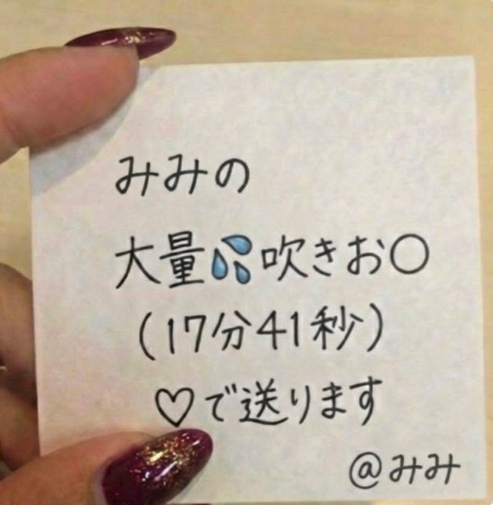 みみの
大量💦吹きお〇
(17分41秒)
♡で送ります
@みみ